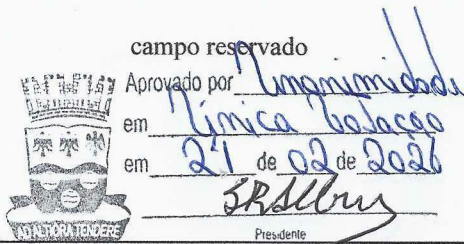 campo reservado
Aprovado por Unanimidade
em Única Votação
em 21 de 02 de 2026
Presidente
AD ALTIORA TENDERE